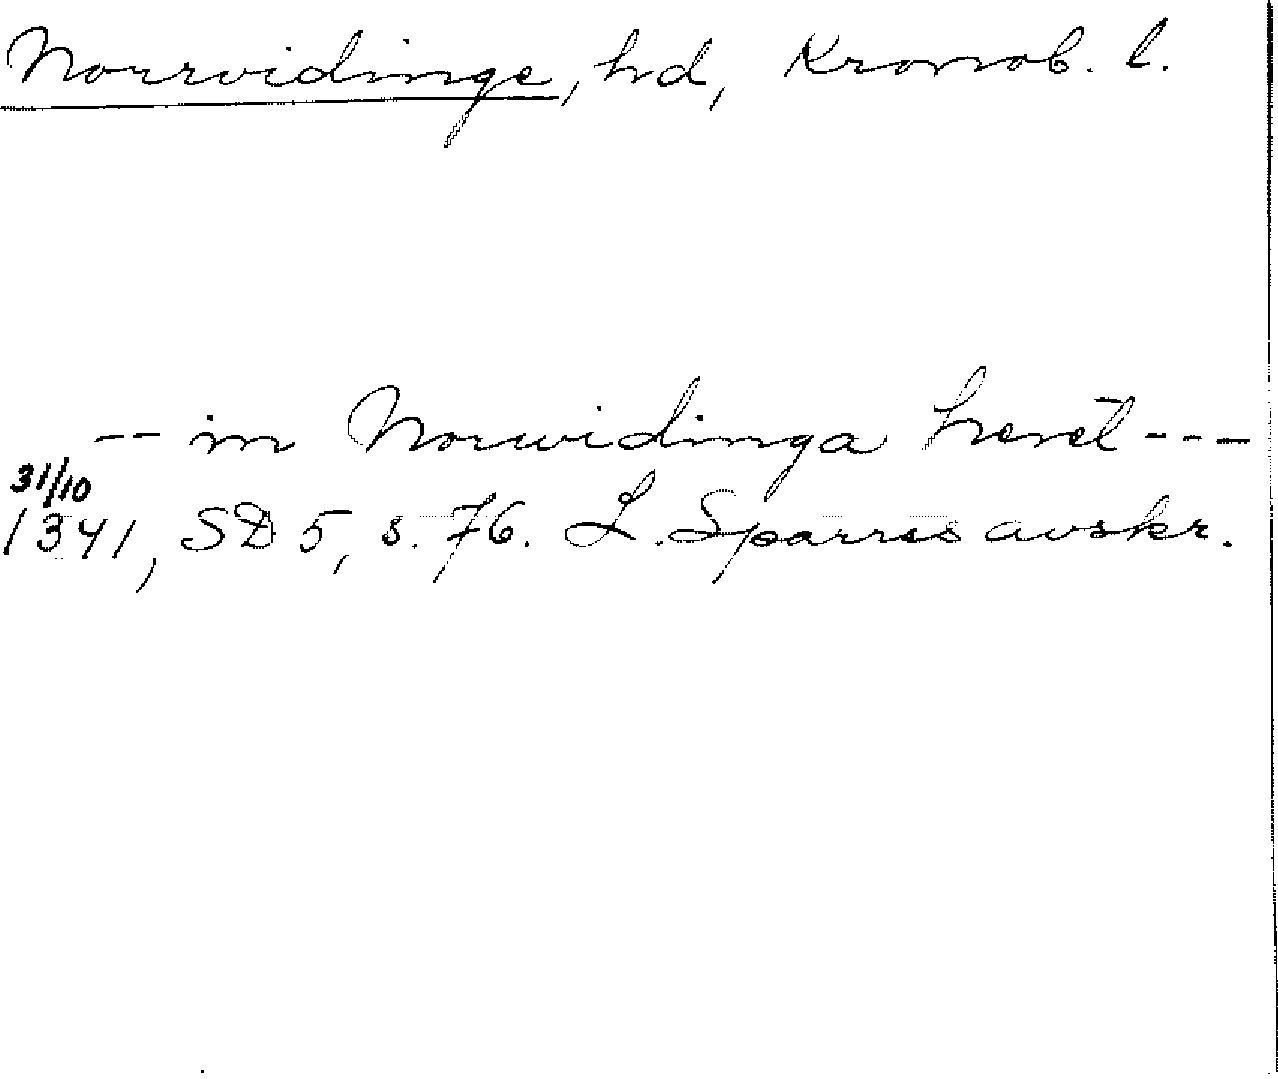 Norrvidinge, hd, Kronob. l.
-- in Norwidinga
31/10
1341, SD 5, s. 76. L. Sparres avskr.